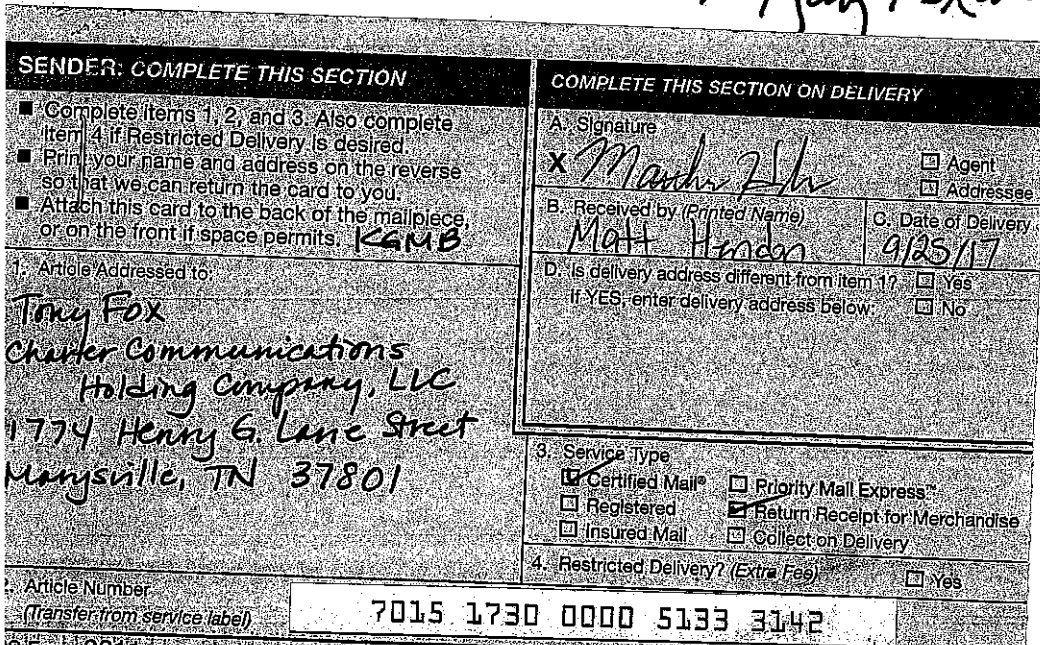 SENDER: COMPLETE THIS SECTION
■ Complete items 1, 2, and 3. Also complete
item 4 if Restricted Delivery is desired.
■ Print your name and address on the reverse
so that we can return the card to you.
■ Attach this card to the back of the mailpiece,
or on the front if space permits. KGMB
1. Article Addressed to:
Tony Fox
Charter Communications
Holding Company, LLC
1774 Henry G. Lane Street
Marysville, TN 37801
2. Article Number
(Transfer from service label)
7015 1730 0000 5133 3142
COMPLETE THIS SECTION ON DELIVERY
A. Signature
X
Agent
Addressee
B. Received by (Printed Name)
Matt
C. Date of Delivery
9/25/17
D. Is delivery address different from item 1? Yes
If YES, enter delivery address below: No
3. Service Type
Certified Mail® Priority Mail Express™
Registered Return Receipt for Merchandise
Insured Mail Collect on Delivery
4. Restricted Delivery? (Extra Fee) Yes